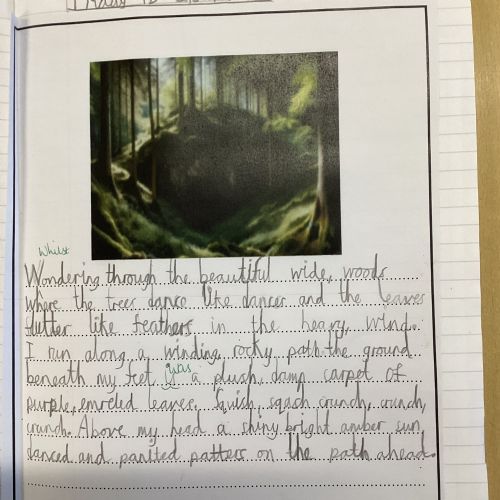 whilst
Wondering through the beautiful wide, woods
where the trees dance like dancer and the leaves
flutter like feathers in the heavy, wind.
I run along a winding, rocky path the ground
beneath my feet was a plush, damp carpet of
purple, emreled leaves. Squish, sqash crunch, crunch,
crunch. Above my head a shiny bright amber sun
danced and panited patters on the path ahead.